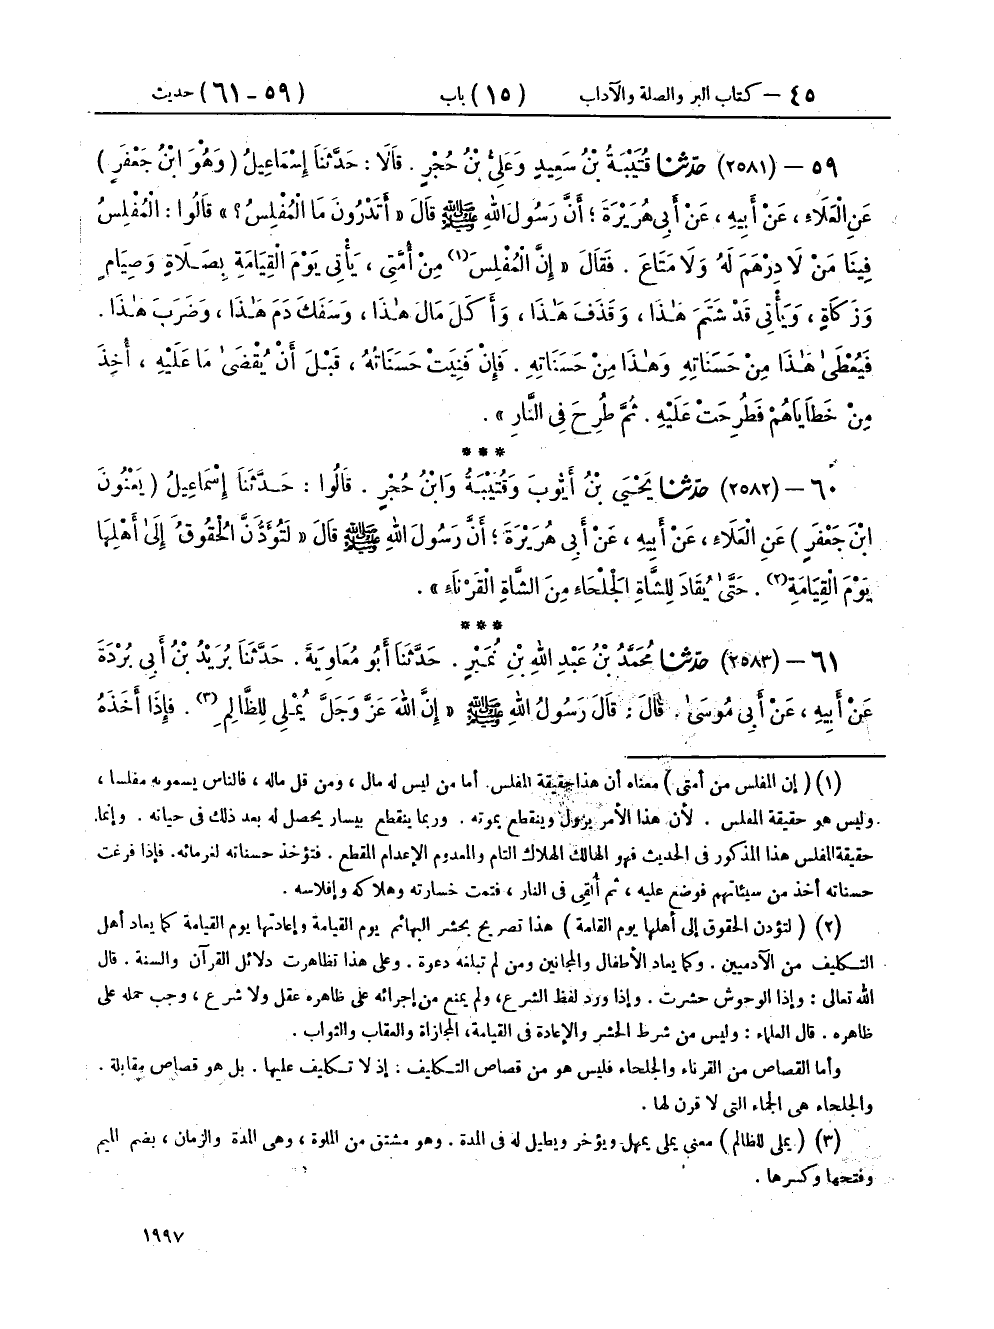 ٤٥ – كتاب البر والصلة والآداب (١٥) باب (٥٩ – ٦١) حديث
٥٩ – (٢٥٨١) حَدَّثَنَا قُتَيْبَةُ بْنُ سَعِيدٍ وَعَلِيُّ بْنُ حُجْرٍ . قَالَا : حَدَّثَنَا إِسْمَاعِيلُ ( وَهُوَ ابْنُ جَعْفَرٍ )
عَنِ الْعَلَاءِ ، عَنْ أَبِيهِ ، عَنْ أَبِي هُرَيْرَةَ ؛ أَنَّ رَسُولَ اللهِ ﷺ قَالَ « أَتَدْرُونَ مَا الْمُفْلِسُ ؟ » قَالُوا : الْمُفْلِسُ
فِينَا مَنْ لَا دِرْهَمَ لَهُ وَلَا مَتَاعَ . فَقَالَ « إِنَّ الْمُفْلِسَ(١) مِنْ أُمَّتِي ، يَأْتِي يَوْمَ الْقِيَامَةِ بِصَلَاةٍ وَصِيَامٍ
وَزَكَاةٍ ، وَيَأْتِي قَدْ شَتَمَ هَٰذَا ، وَقَذَفَ هَٰذَا ، وَأَكَلَ مَالَ هَٰذَا ، وَسَفَكَ دَمَ هَٰذَا ، وَضَرَبَ هَٰذَا .
فَيُعْطَىٰ هَٰذَا مِنْ حَسَنَاتِهِ وَهَٰذَا مِنْ حَسَنَاتِهِ . فَإِنْ فَنِيَتْ حَسَنَاتُهُ ، قَبْلَ أَنْ يُقْضَىٰ مَا عَلَيْهِ ، أُخِذَ
مِنْ خَطَايَاهُمْ فَطُرِحَتْ عَلَيْهِ . ثُمَّ طُرِحَ فِي النَّارِ » .
***
٦٠ – (٢٥٨٢) حَدَّثَنَا يَحْيَى بْنُ أَيُّوبَ وَقُتَيْبَةُ وَابْنُ حُجْرٍ . قَالُوا : حَدَّثَنَا إِسْمَاعِيلُ ( يَعْنُونَ
ابْنَ جَعْفَرٍ ) عَنِ الْعَلَاءِ ، عَنْ أَبِيهِ ، عَنْ أَبِي هُرَيْرَةَ ؛ أَنَّ رَسُولَ اللهِ ﷺ قَالَ « لَتُؤَدُّنَّ الْحُقُوقَ إِلَىٰ أَهْلِهَا
يَوْمَ الْقِيَامَةِ(٢) . حَتَّىٰ يُقَادَ لِلشَّاةِ الْجَلْحَاءِ مِنَ الشَّاةِ الْقَرْنَاءِ » .
***
٦١ – (٢٥٨٣) حَدَّثَنَا مُحَمَّدُ بْنُ عَبْدِ اللهِ بْنِ نُمَيْرٍ . حَدَّثَنَا أَبُو مُعَاوِيَةَ . حَدَّثَنَا بُرَيْدُ بْنُ أَبِي بُرْدَةَ
عَنْ أَبِيهِ ، عَنْ أَبِي مُوسَىٰ . قَالَ : قَالَ رَسُولُ اللهِ ﷺ « إِنَّ اللهَ عَزَّ وَجَلَّ يُمْلِي لِلظَّالِمِ(٣) . فَإِذَا أَخَذَهُ
(١) ( إن المفلس من أمتي ) معناه أن هذا حقيقة المفلس. أما من ليس له مال ، ومن قل ماله ، فالناس يسمونه مفلسا ،
وليس هو حقيقة المفلس . لأن هذا الأمر يزول وينقطع بموته . وربما ينقطع بيسار يحصل له بعد ذلك في حياته . وإنما
حقيقة المفلس هذا المذكور في الحديث فهو الهالك الهلاك التام والمعدوم الإعدام المقطع . فتؤخذ حسناته لغرمائه. فإذا فرغت
حسناته أخذ من سيئاتهم فوضع عليه ، ثم ألقى في النار ، فتمت خسارته وهلاكه وإفلاسه .
(٢) ( لتؤدن الحقوق إلى أهلها يوم القامة ) هذا تصريح بحشر البهائم يوم القيامة وإعادتها يوم القيامة كما يعاد أهل
التكليف من الآدميين . وكما يعاد الأطفال والمجانين ومن لم تبلغه دعوة . وعلى هذا تظاهرت دلائل القرآن والسنة . قال
الله تعالى : وإذا الوحوش حشرت . وإذا ورد لفظ الشرع، ولم يمنع من إجرائه على ظاهره عقل ولا شرع ، وجب حمله على
ظاهره . قال العلماء : وليس من شرط الحشر والإعادة في القيامة، المجازاة والعقاب والثواب .
وأما القصاص من القرناء والجلحاء فليس هو من قصاص التكليف : إذ لا تكليف عليها . بل هو قصاص مقابلة .
والجلحاء هي الجماء التي لا قرن لها .
(٣) ( يملى للظالم ) معنى يملى يمهل ويؤخر ويطيل له في المدة . وهو مشتق من الملوة ، وهي المدة والزمان ، بضم الميم
وفتحها وكسرها .
١٩٩٧